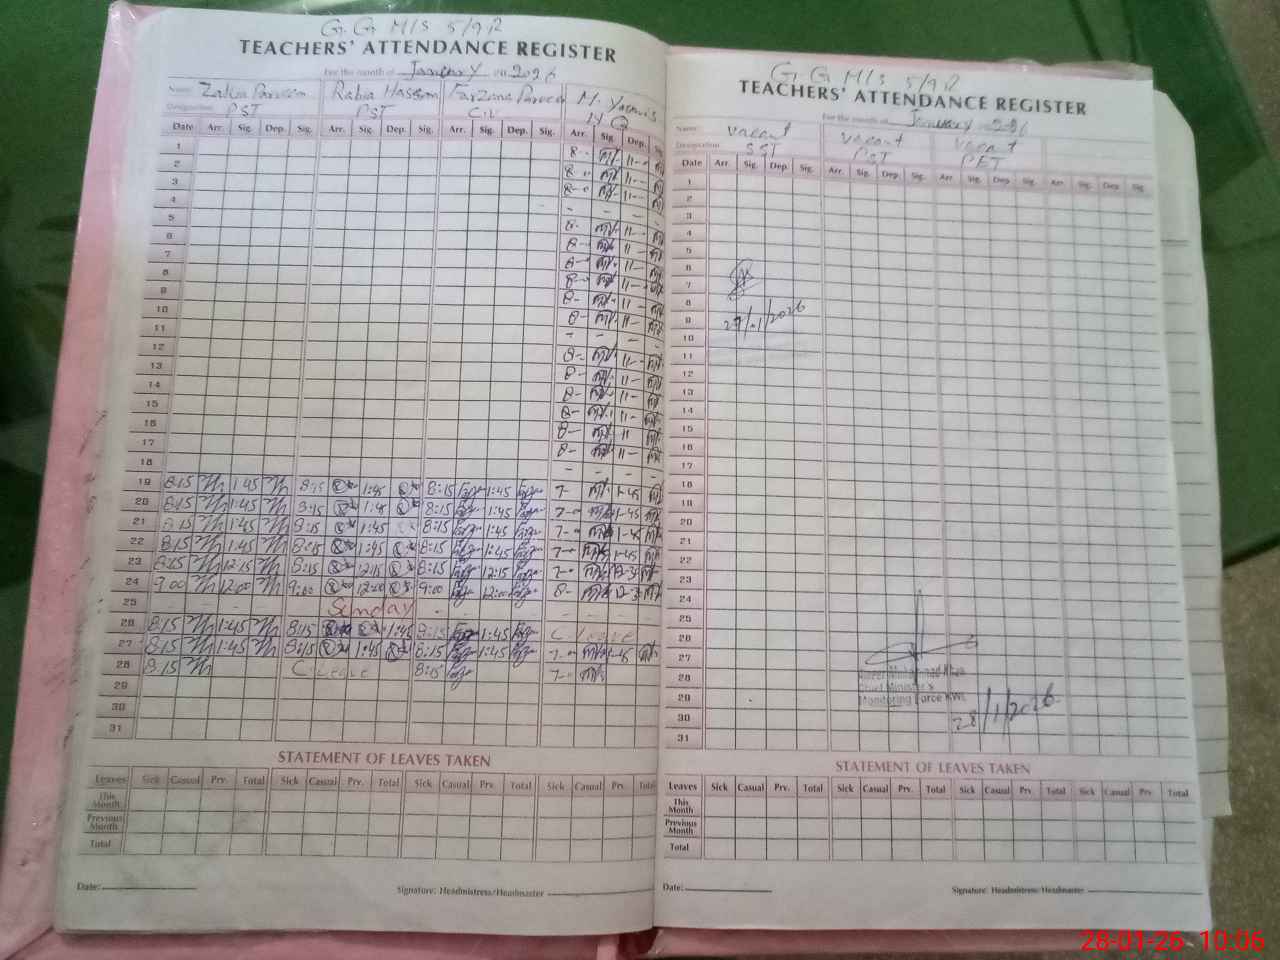 G. G M/S 5/9R
TEACHERS' ATTENDANCE REGISTER
For the month of January 2026
Name: Zakia Parveen Rabia Haseem Farzana Parveen M.
Designation PST PST C.V N Q
Date Arr. Sig. Dep. Sig. Arr. Sig. Dep. Sig. Arr. Sig. Dep. Sig. Arr. Sig. Dep.
1 8- 11-
2 8- 11-
3 8- 11-
4 - - -
5 8- 11-
6 8- 11-
7 8- 11-
8 8- 11-
9 8- 11-
10 8- 11-
11 - - -
12 8- 11-
13 8- 11-
14 8- 11-
15 8- 11-
16 8- 11
17 8- 11-
18 - - -
19 8:15 1:45 8:15 1:45 8:15 1:45 7- 1-45
20 8:15 1:45 8:15 1:45 8:15 1:45 7- 1-45
21 8:15 1:45 8:15 1:45 8:15 1:45 7- 1-45
22 8:15 1:45 8:15 1:45 8:15 1:45 7- 1-45
23 8:15 12:15 8:15 12:15 8:15 12:15 7- 12-3
24 9:00 12:00 9:00 12:00 9:00 12:00 8- 12-3
25 Sunday
26 8:15 1:45 8:15 1:45 8:15 1:45 C. leave
27 8:15 1:45 8:15 1:45 8:15 1:45 7-
28 8:15 C. Leave 8:15 7-
29
30
31
STATEMENT OF LEAVES TAKEN
Leaves Sick Casual Prv. Total Sick Casual Prv. Total Sick Casual Prv. Total Sick Casual Prv. Total
This Month
Previous Month
Total
Date: Signature: Headmistress/Headmaster
G. G M/S 5/9R
TEACHERS' ATTENDANCE REGISTER
For the month of January 2026
Name: vacant vacant vacant
Designation SST PST PET
Date Arr. Sig. Dep. Sig. Arr. Sig. Dep. Sig. Arr. Sig. Dep. Sig. Arr. Sig. Dep. Sig.
1
2
3
4
5
6
7
8
9
27/01/2026
10
11
12
13
14
15
16
17
18
19
20
21
22
23
24
25
26
27
28
Chief Minister's
29
Monitoring Force KWL
28/1/2026
30
31
STATEMENT OF LEAVES TAKEN
Leaves Sick Casual Prv. Total Sick Casual Prv. Total Sick Casual Prv. Total Sick Casual Prv. Total
This Month
Previous Month
Total
Date: Signature: Headmistress/Headmaster
28-01-26 10:06